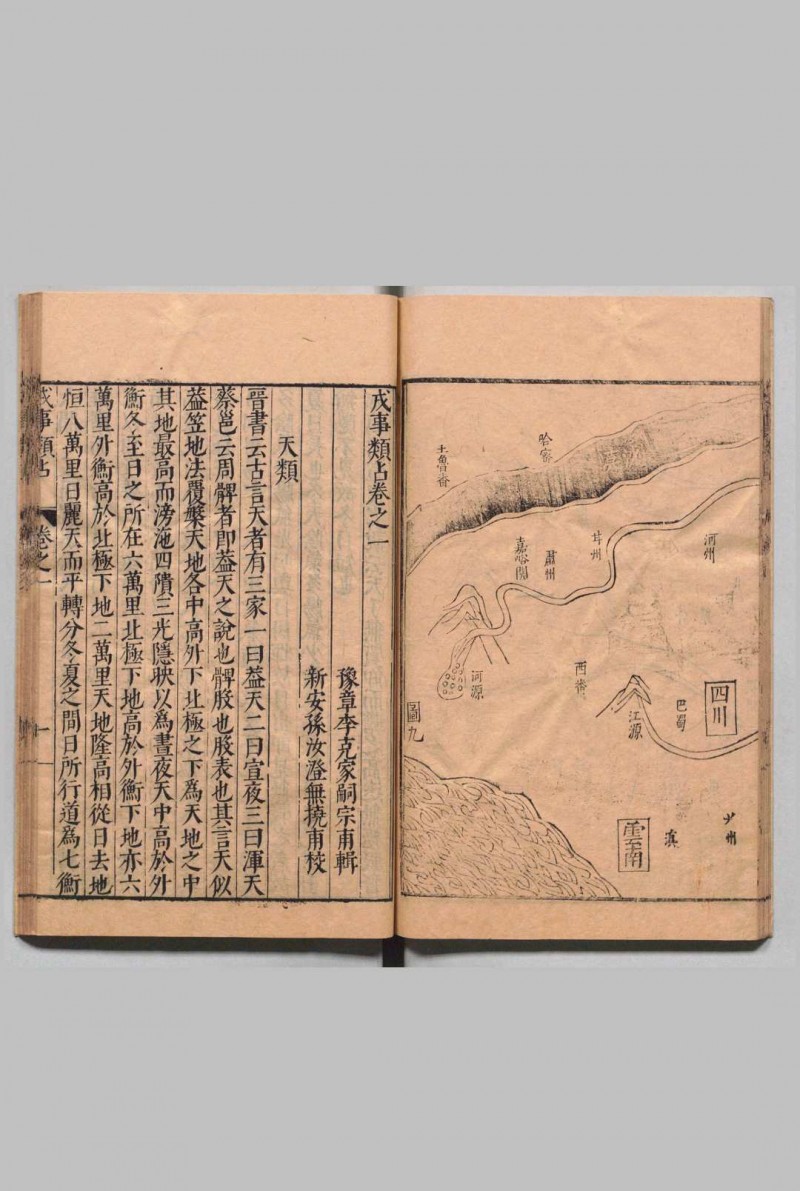 哈密
土魯番
河州
甘州
肅州
嘉峪關
西番
河源
四川
巴蜀
江源
圖九
雲南
滇
戎事類占卷之一
豫章李克家嗣宗甫輯
新安孫汝澄無撓甫校
天類
晉書云古言天者有三家一曰葢天二曰宣夜三曰渾天
蔡邕云周髀者即葢天之說也髀股也股表也其言天似
葢笠地法覆槃天地各中高外下北極之下為天地之中
其地最高而滂沲四隤三光隱映以為晝夜天中高於外
衡冬至日之所在六萬里北極下地高於外衡下地亦六
萬里外衡高於北極下地二萬里天地隆高相從日去地
恒八萬里日麗天而平轉分冬夏之間日所行道為七衡
戎事類占
卷之一
一